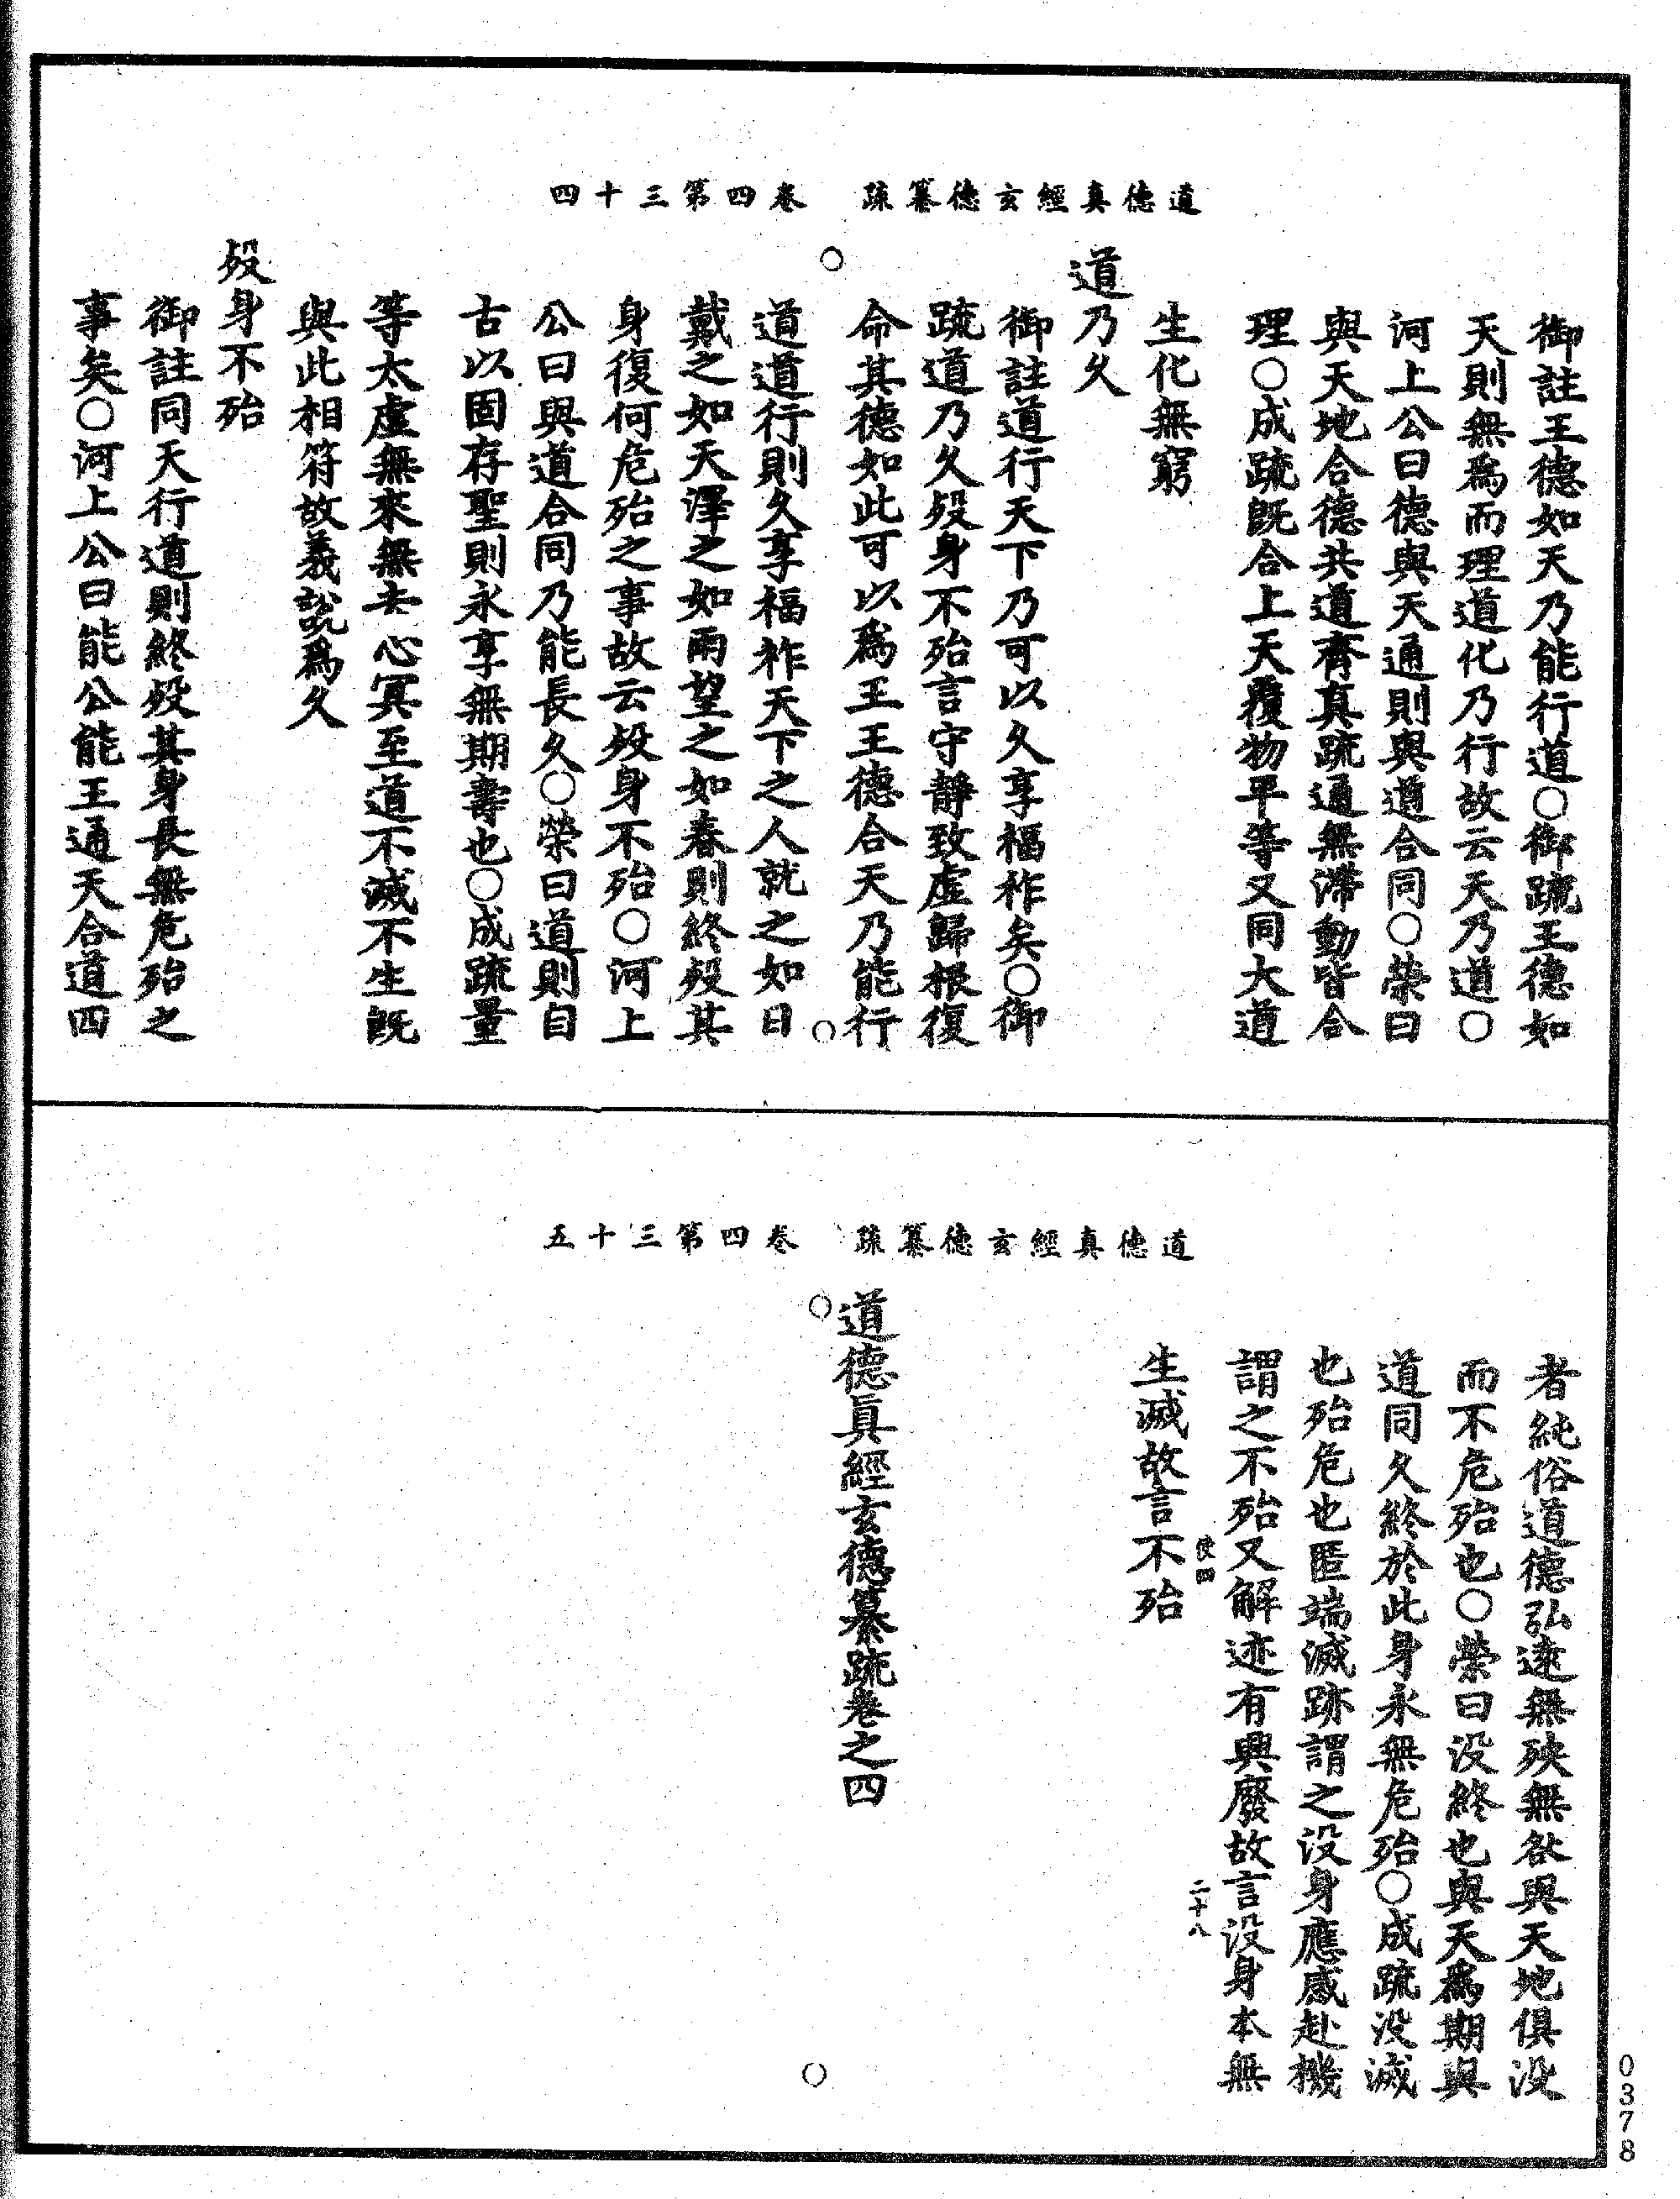 道德真經玄德纂疏　卷四第三十四
御註王德如天乃能行道○御疏王德如
天則無為而理道化乃行故云天乃道○
河上公曰德與天通則與道合同○榮曰
與天地合德共道齊真疏通無滯動皆合
理○成疏既合上天覆物平等又同大道
生化無窮
道乃久
御註道行天下乃可以久享福祚矣○御
疏道乃久歿身不殆言守靜致虛歸根復
命其德如此可以為王王德合天乃能行
道道行則久享福祚天下之人就之如日
戴之如天澤之如雨望之如春則終歿其
身復何危殆之事故云歿身不殆○河上
公曰與道合同乃能長久○榮曰道則自
古以固存聖則永享無期壽也○成疏量
等太虛無來無去心冥至道不滅不生既
與此相符故義說為久
歿身不殆
御註同天行道則終歿其身長無危殆之
事矣○河上公曰能公能王通天合道四
道德真經玄德纂疏　卷四第三十五
者純俗道德弘遠無殃無咎與天地俱没
而不危殆也○榮曰没終也與天為期與
道同久終於此身永無危殆○成疏没滅
也殆危也匿端滅跡謂之没身應感赴機
謂之不殆又解迹有興廢故言没身本無
使四　二十八
生滅故言不殆
道德真經玄德纂疏卷之四
0378